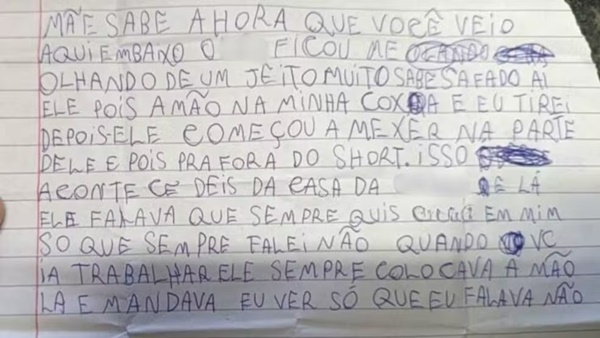 MÃE SABE AHORA QUE VOCÊ VEIO
AQUI EMBAIXO O FICOU ME
OLHANDO DE UM JEITO MUITO SABE SAFADO AI
ELE POIS A MÃO NA MINHA COXA E EU TIREI
DEPOIS ELE COMEÇOU A MEXER NA PARTE
DELE E POIS PRA FORA DO SHORT. ISSO
ACONTECE DEIS DA CASA DA DE LÁ
ELE FALAVA QUE SEMPRE QUIS EM MIM
SO QUE SEMPRE FALEI NÃO QUANDO VC
IA TRABALHAR ELE SEMPRE COLOCAVA A MÃO
LA E MANDAVA EU VER SÓ QUE EU FALAVA NÃO